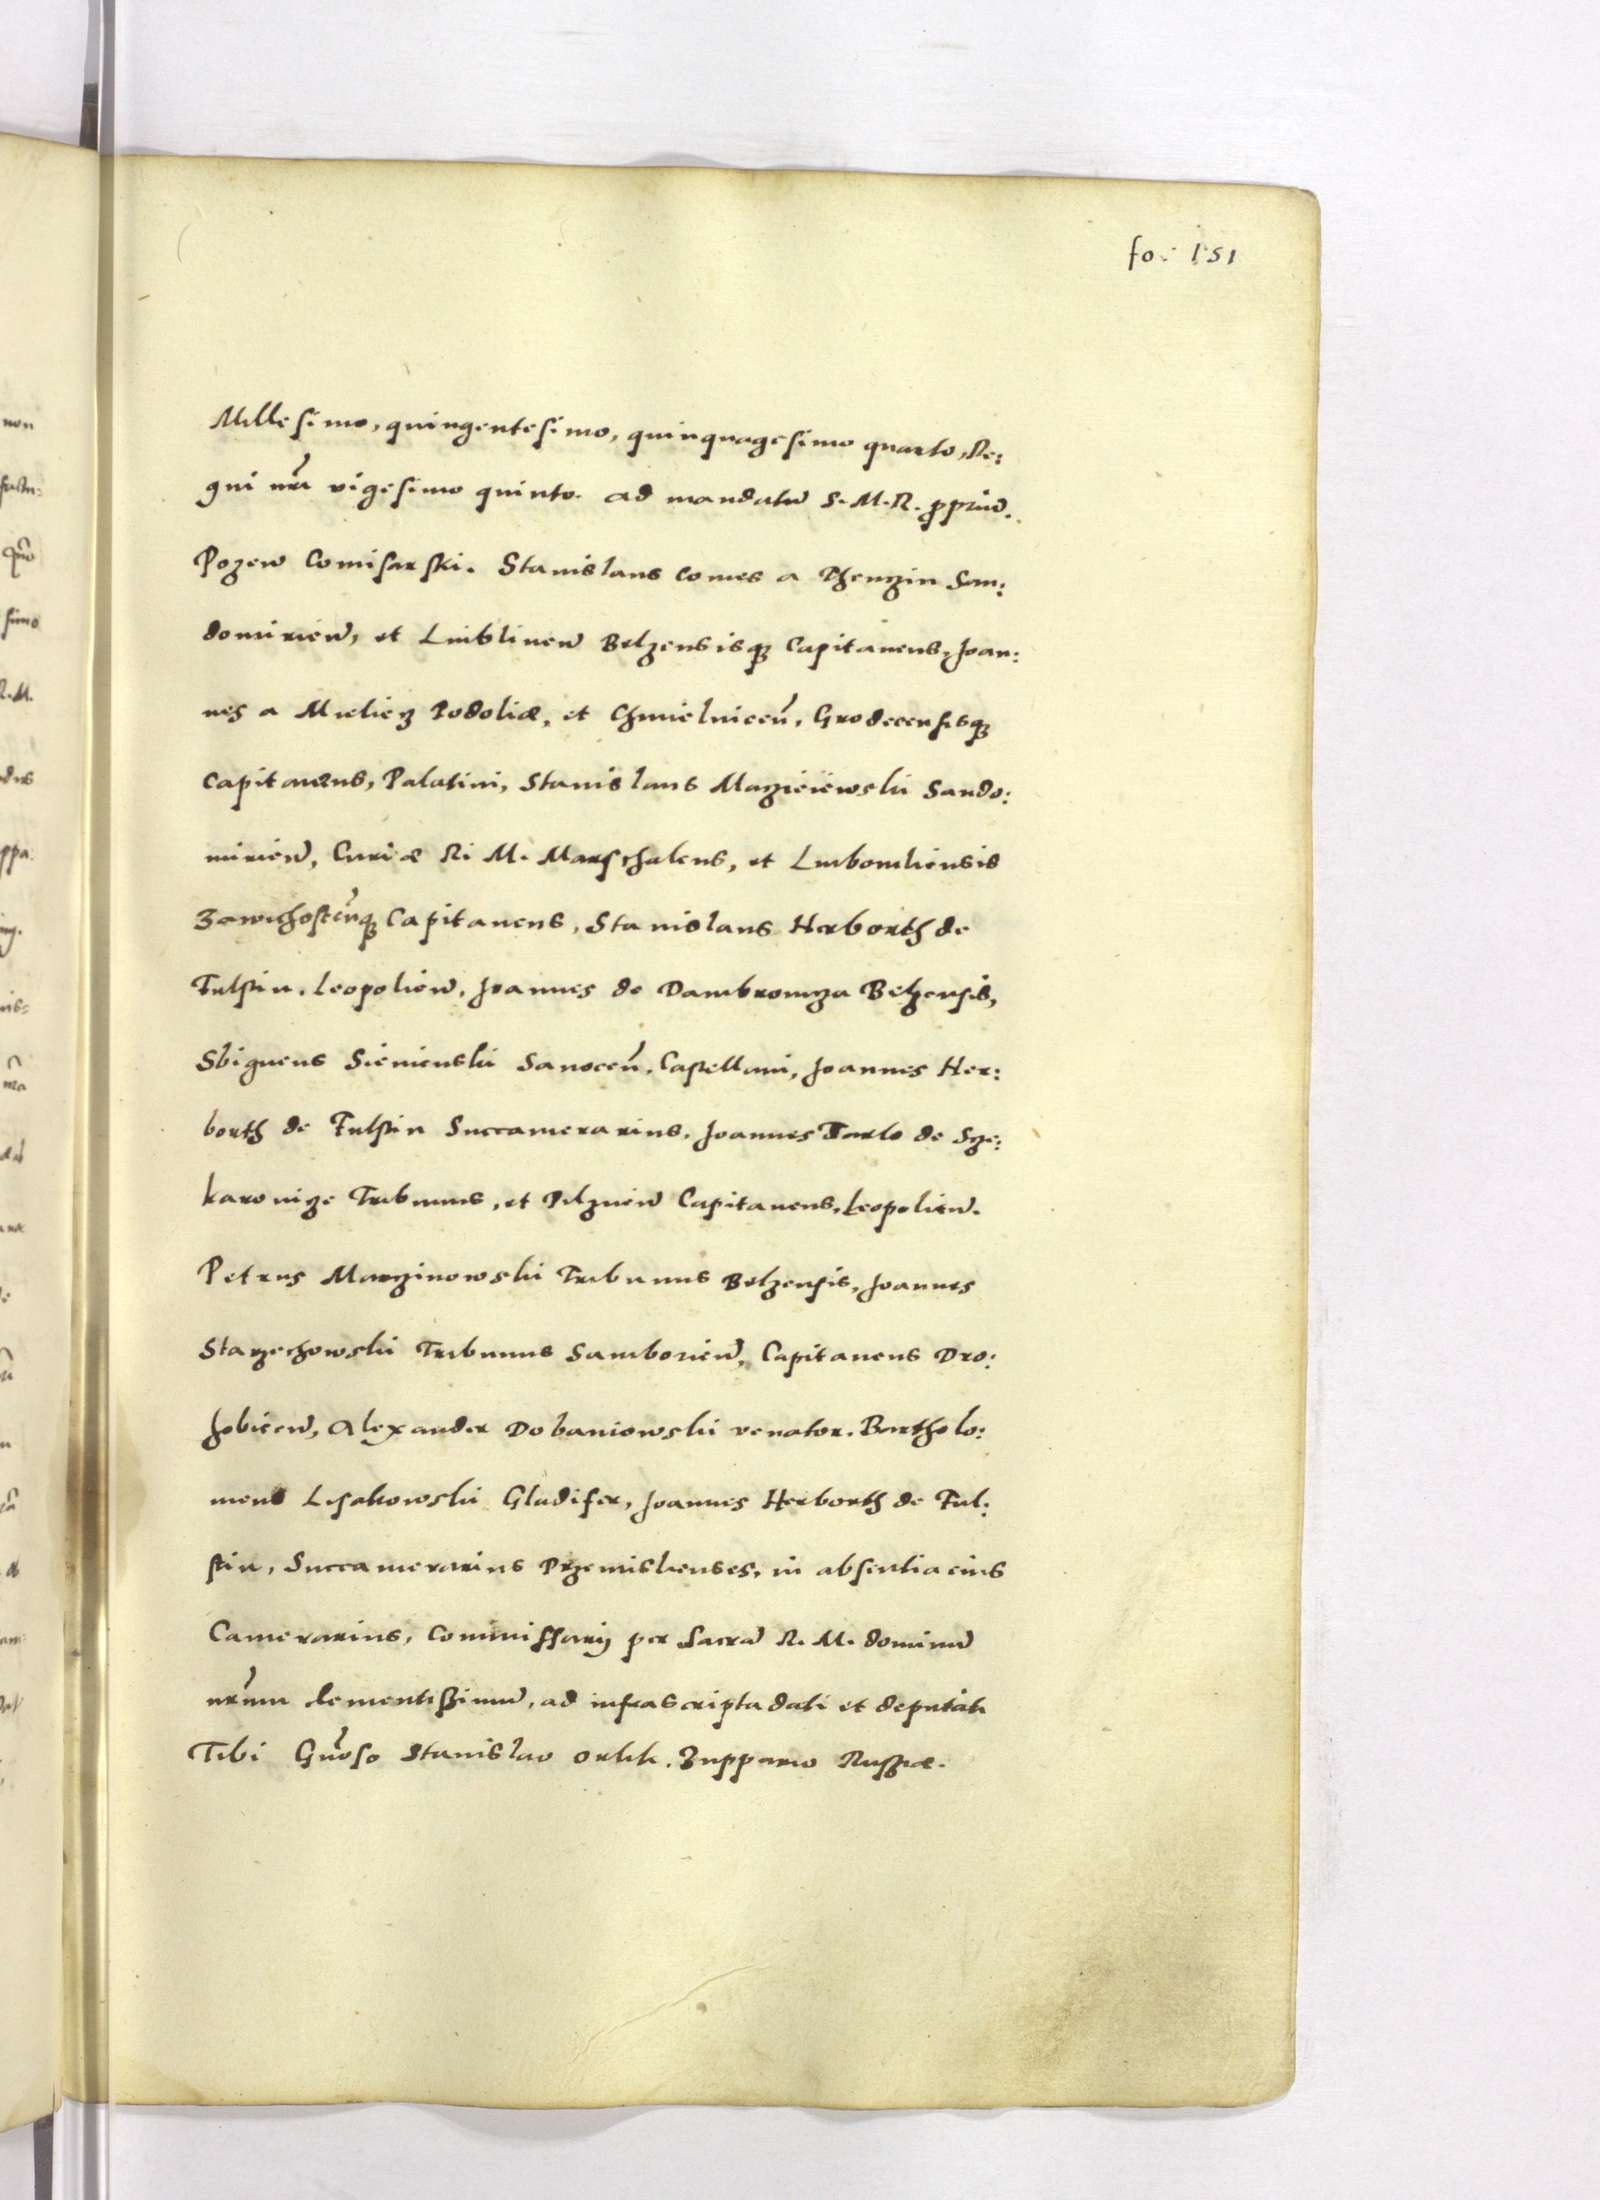 fo: 151
Millesimo, quingentesimo, quinquagesimo quarto, Re:
gni nrĩ vigesimo quinto. ad mandatũ S. M. R. ppriũ.
Pozew Comisarski. Stanislaus Comes a Thenczin San:
domirieñ, et Lublineñ Belzensisq3 Capitaneus, Joan:
nes a Mielicz Podoliæ, et Chmielniceñ, Grodecensisq3
Capitaneus, Palatini, Stanislaus Maczieiewski Sando:
mirieñ, Curiæ R. M. Marschalcus, et Lubomliensis
Zawichosteñq3 Capitaneus, Stanislaus Herborth de
Fulstin, Leopolieñ, Joannes de Dambrowicza Belzensis,
Sbigneus Sienienski Sanoceñ, Castellani, Joannes Her:
borth de Fulstin Succamerarius, Joannes Tarlo de Scze:
karowicze Tribunus, et Pilzneñ Capitaneus, Leopolieñ.
Petrus Marczinowski Tribunus Belzensis, Joannes
Starzechowski Tribunus Samborieñ, Capitaneus Dro:
hobiceñ, Alexander Dobaniowski venator. Bartholo:
meus Lysakowski Gladifer, Joannes Herborth de Ful:
stin, Succamerarius Przemislienses, in absentia eius
Camerarius, Commissarij per Sacrã R. M. dominũ
nrũm clementissimũ, ad infrascripta dati et deputati
Tibi Gñoso Stanislao Orlik, Zuppario Russiæ.